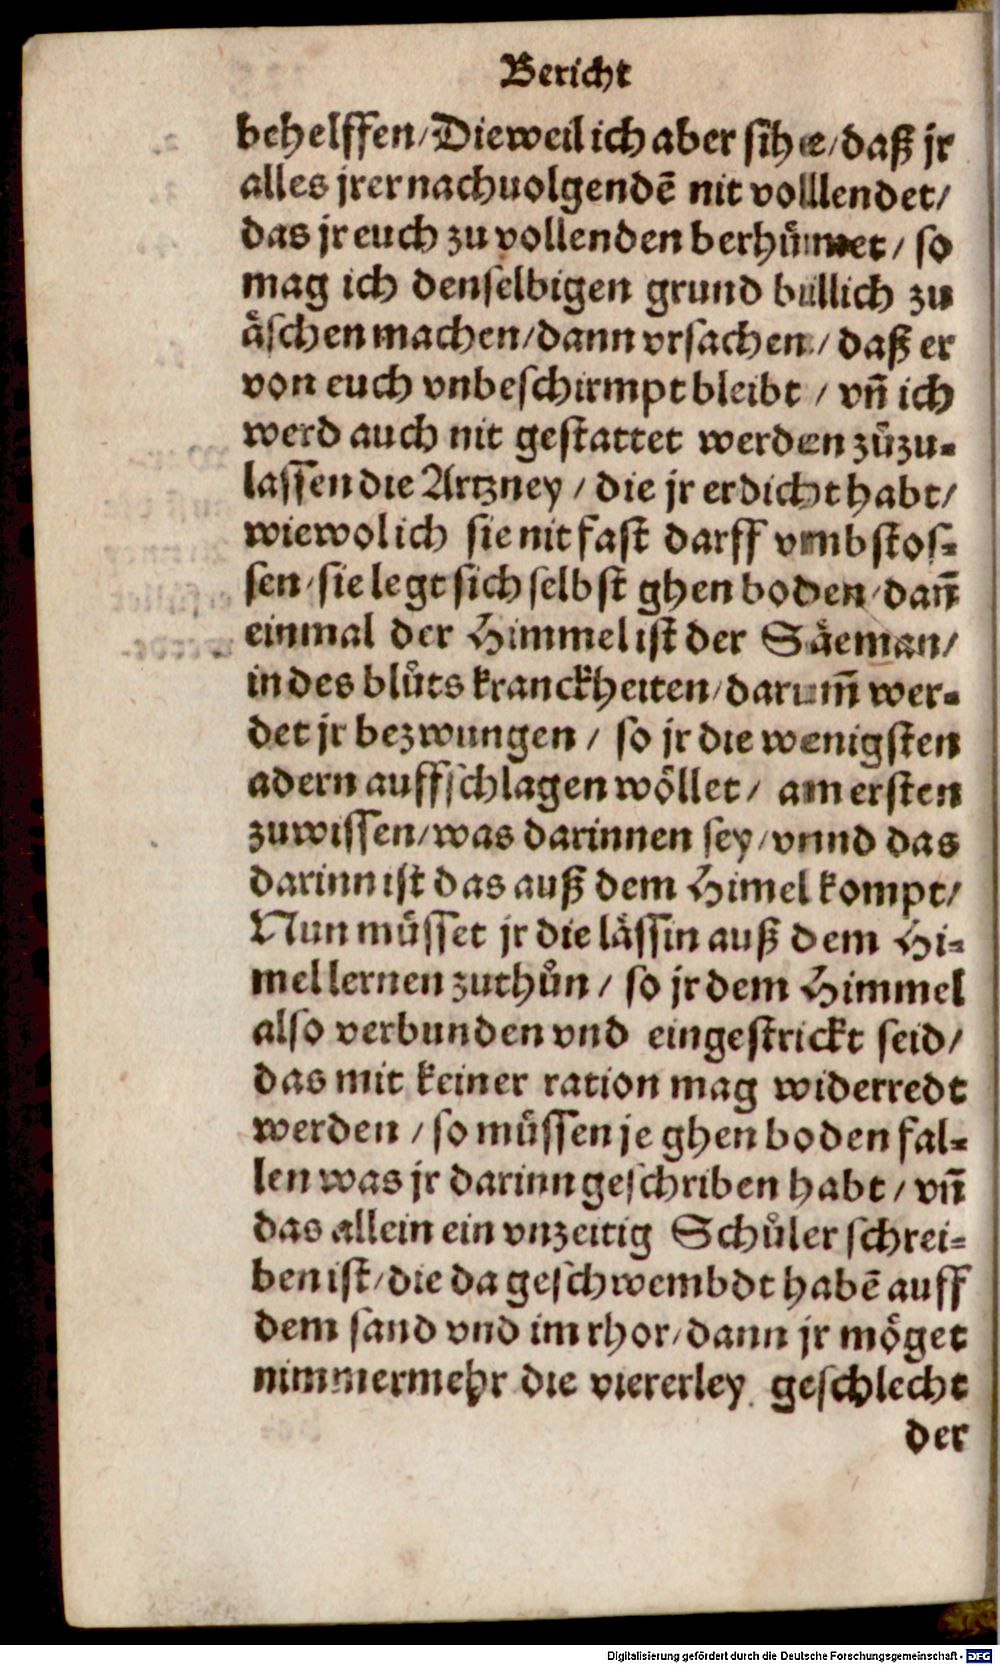 Bericht
behelffen/Dieweil ich aber sihe/daß jr
alles jrer nachuolgendẽ nit volllendet/
das jr euch zu vollenden berhuͤmet / so
mag ich denselbigen grund billich zu
aͤschen machen/dann vrsachen / daß er
von euch vnbeschirmpt bleibt / vñ ich
werd auch nit gestattet werden zuͦzu-
lassen die Artzney / die jr erdicht habt/
wiewol ich sie nit fast darff vmbstos-
sen/sie legt sich selbst ghen boden/dañ
einmal der Himmel ist der Saͤeman/
in des bluͦts kranckheiten/darum̃ wer-
det jr bezwungen / so jr die wenigsten
adern auffschlagen woͤllet / am ersten
zuwissen/was darinnen sey/vnnd das
darinn ist das auß dem Himel kompt/
Nun muͤsset jr die laͤssin auß dem Hi-
mel lernen zuthuͦn / so jr dem Himmel
also verbunden vnd eingestrickt seid/
das mit keiner ration mag widerredt
werden / so muͤssen je ghen boden fal-
len was jr darinn geschriben habt / vñ
das allein ein vnzeitig Schuͦler schrei-
ben ist/die da geschwembdt habẽ auff
dem sand vnd im rhor/dann jr moͤget
nimmermehr die viererley geschlecht
der
Digitalisierung gefördert durch die Deutsche Forschungsgemeinschaft - DFG